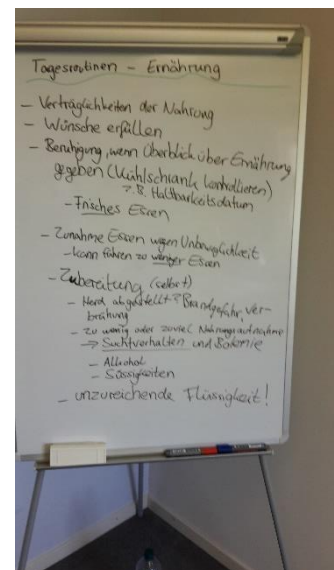 Tagesroutinen – Ernährung
– Verträglichkeiten der Nahrung
– Wünsche erfüllen
– Beruhigung, wenn Überblick über Ernährung
gegeben (Kühlschrank kontrollieren)
z.B. Haltbarkeitsdatum
– Frisches Essen
– Zunahme Essen wegen Unbeweglichkeit
– kann führen zu weniger Essen
– Zubereitung (selbst)
– Herd abgestellt? Brandgefahr, Ver-
brühung
– Zu wenig oder zuviel Nahrungsaufnahme
→ Suchtverhalten und
– Alkohol
– Süssigkeiten
– unzureichende Flüssigkeit!